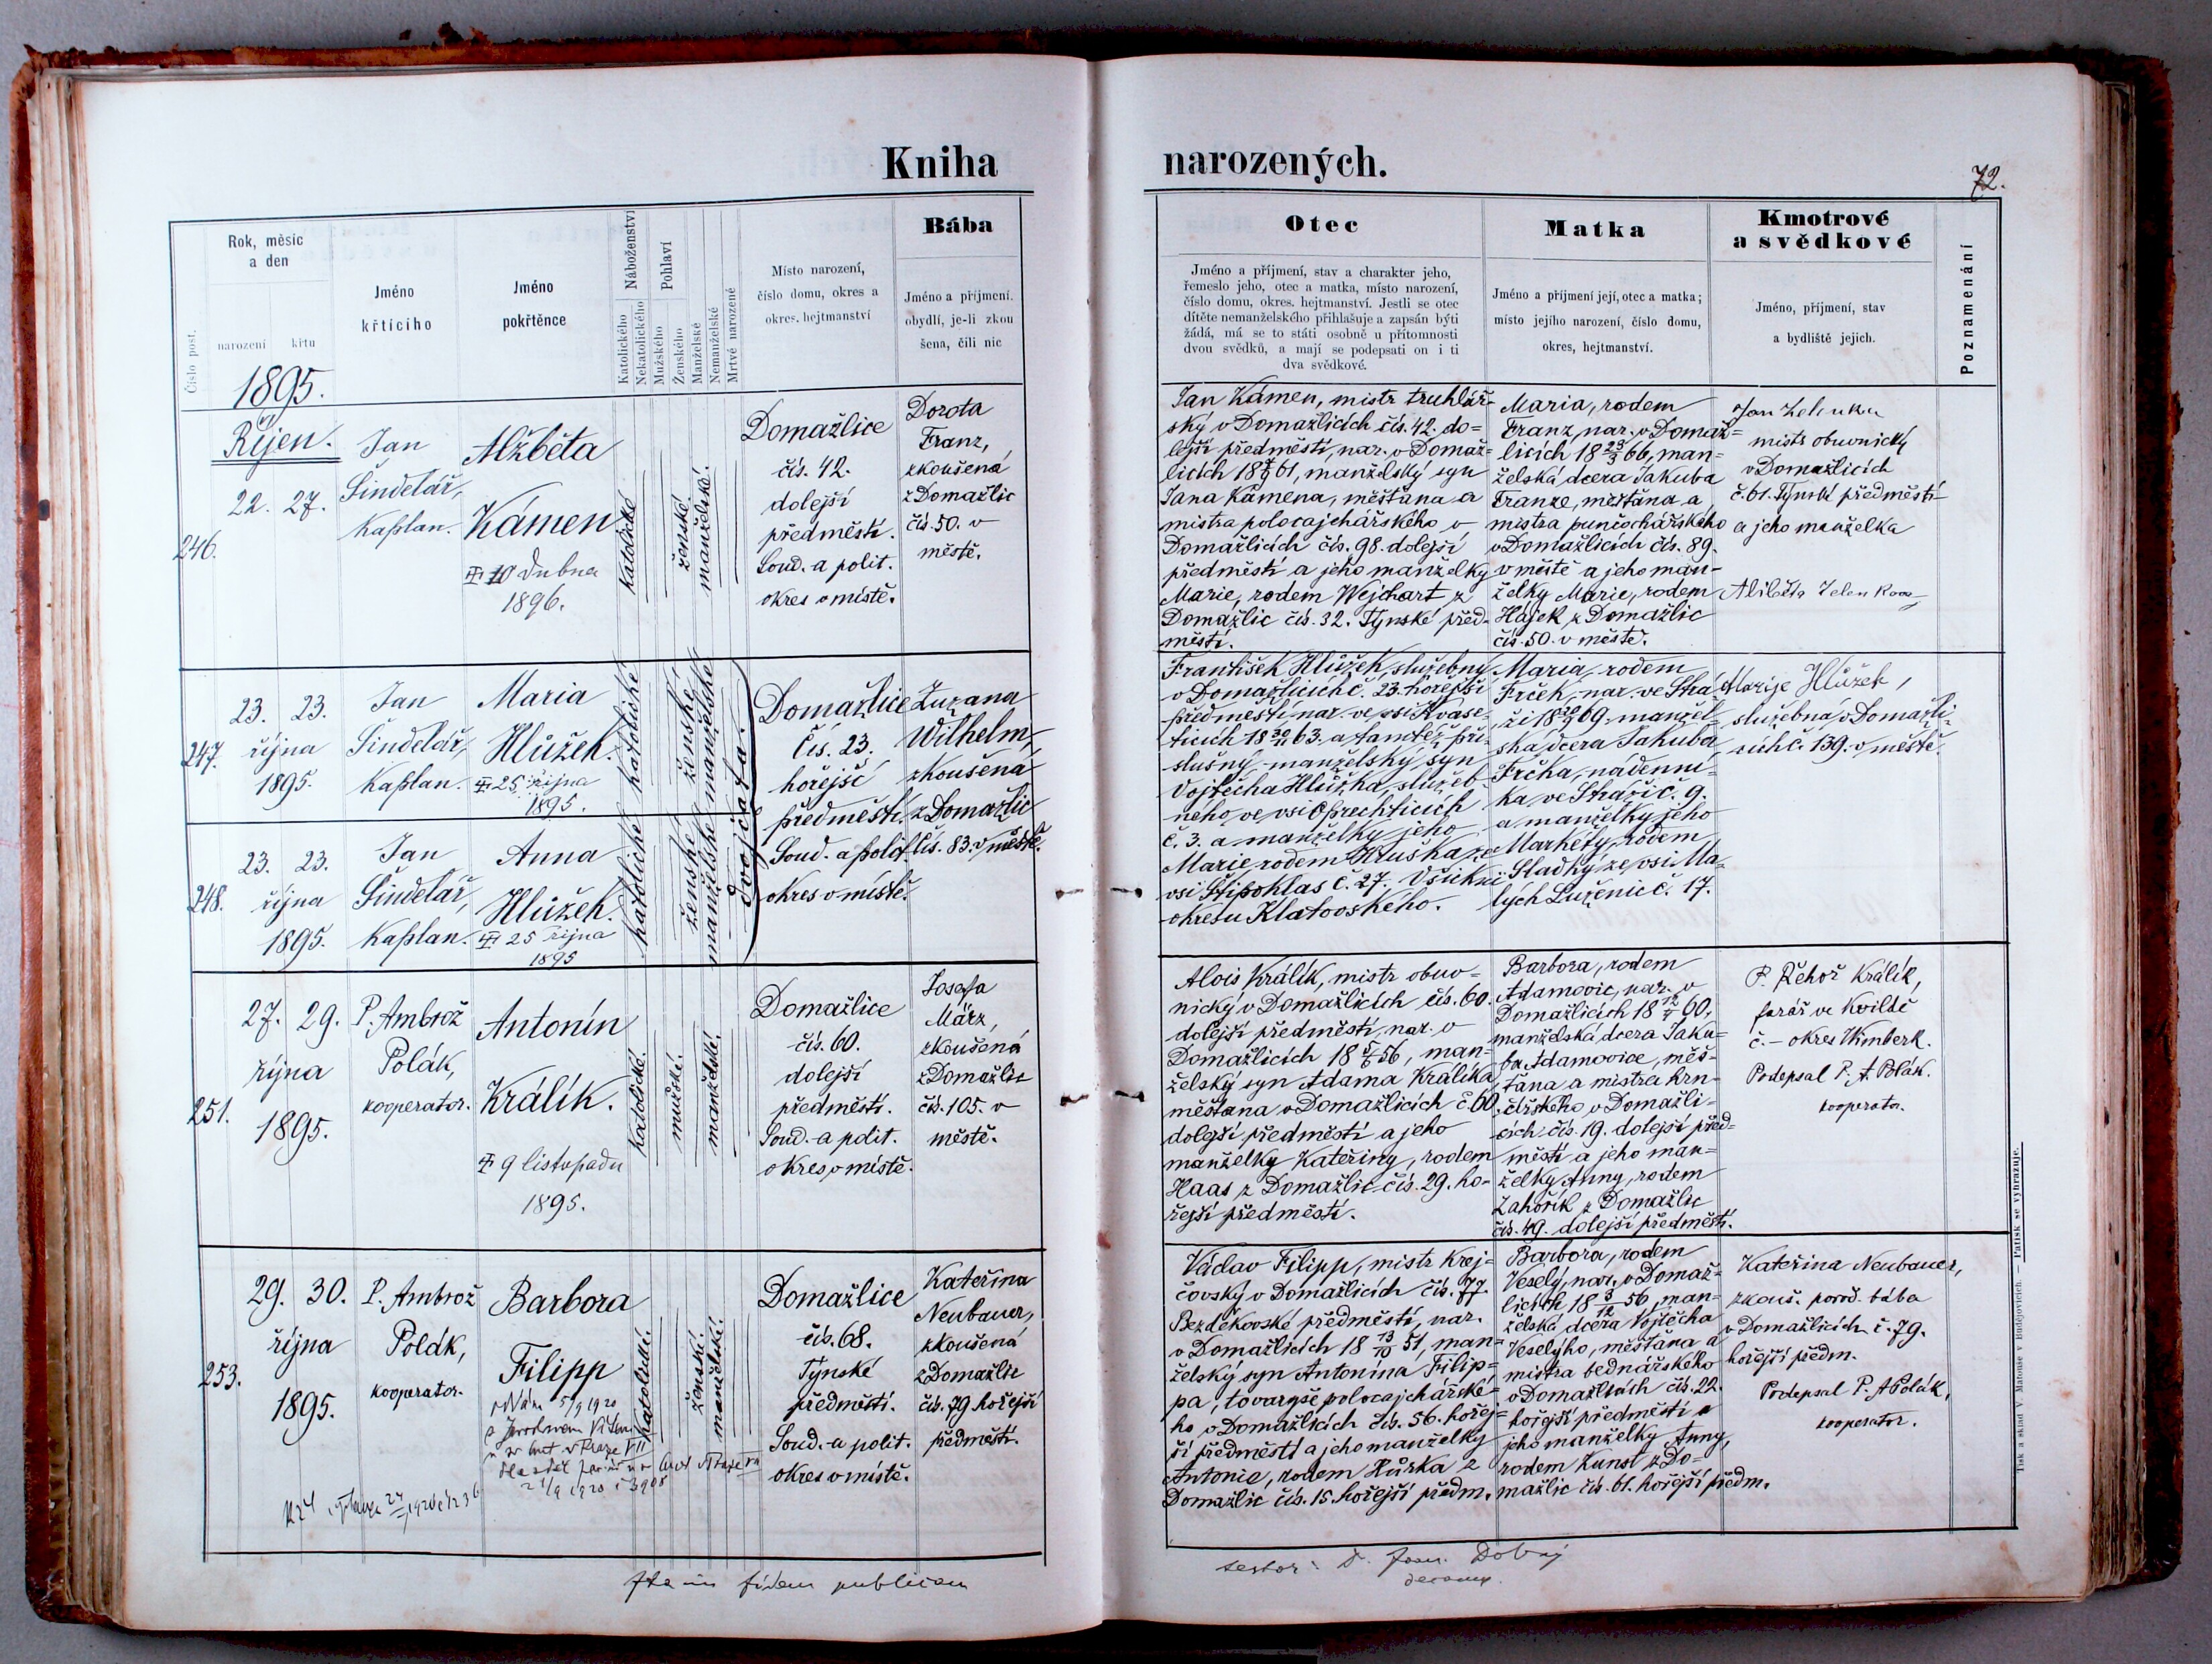 Kniha
narozených.
72.
Číslo post.
Rok, měsíc
a den
narození
křtu
Jméno
křtícího
Jméno
pokřtěnce
Náboženství
Katolického
Nekatolického
Pohlaví
Mužského
Ženského
Manželské
Nemanželské
Mrtvě narozené
Místo narození,
číslo domu, okres a
okres. hejtmanství
Bába
Jméno a příjmení.
obydlí, je-li zkou
šena, čili nic
Otec
Jméno a příjmení, stav a charakter jeho,
řemeslo jeho, otec a matka, místo narození,
číslo domu, okres. hejtmanství. Jestli se otec
dítěte nemanželského přihlašuje a zapsán býti
žádá, má se to státi osobně u přítomnosti
dvou svědků, a mají se podepsati on i ti
dva svědkové.
Matka
Jméno a příjmení její, otec a matka;
místo jejího narození, číslo domu,
okres, hejtmanství.
Kmotrové
a svědkové
Jméno, příjmení, stav
a bydliště jejich.
Poznamenání
1895.
Říjen.
246.
22. 27.
Jan
Šindelář,
kaplan.
Alžběta
Kámen
10 dubna
1896.
katolické
ženské.
manželské.
Domažlice
čís. 42.
dolejší
předměstí.
Soud. a polit.
okres v místě.
Dorota
Franz,
zkoušená
z Domažlic
čís. 50. v
městě.
Jan Kámen, mistr truhlář-
ský v Domažlicích čís. 42. do=
lejší předměstí, nar. v Domaž=
licích 18 61, manželský syn
Jana Kámena, měšťana a
mistra polocajchářského v
Domažlicích čís. 98. dolejší
předměstí a jeho manželky
Marie, rodem Wejchart z
Domažlic čís. 32. Týnské před-
městí.
Maria, rodem
Franz, nar. v Domaž=
licích 18 23/3 66, man=
želská dcera Jakuba
Franze, měšťana a
mistra punčochářského
v Domažlicích čís. 89.
v městě a jeho man-
želky Marie, rodem
Hájek z Domažlic
čís. 50. v městě.
Jan Zelenka
mistr obuvnický
v Domažlicích
č. 61. Týnské předměstí
a jeho manželka
Alžběta Zelenkova
247.
23. 23.
října
1895.
Jan
Šindelář,
kaplan.
Maria
Hlůžek.
25 října
1895.
katolické
ženské
manželské
dvojčata.
Domažlice
čís. 23.
hořejší
předměstí.
Soud. a polit.
okres v místě.
Zuzana
Wilhelm,
zkoušená
z Domažlic
čís. 83. v městě.
František Hlůžek, služebný
v Domažlicích č. 23. hořejší
předměstí nar. ve vsi Kvase-
ticích 18 63. a tamtéž pří-
slušný, manželský syn
Vojtěcha Hlůžka, služeb
ného ve vsi Oprechticích
č. 3. a manželky jeho
Marie rodem Hruška ze
vsi Štipoklas č. 27. Všickni
okresu Klatovského.
Maria, rodem
Frček, nar. ve Strá-
ži 18 69. manžel-
ská dcera Jakuba
Frčka, nádenní-
ka ve Stráži č. 9.
a manželky jeho
Markéty, rodem
Sladký ze vsi Ma-
lých Luženic č. 17.
Marije Hlůžek,
služebná v Domažli-
cích č. 139. v městě.
248.
23. 23.
října
1895.
Jan
Šindelář,
kaplan.
Anna
Hlůžek.
25 října
1895
katolické
ženské
manželské
251.
27. 29.
října
1895.
P. Ambrož
Polák,
kooperator.
Antonín
Králík.
9 listopadu
1895.
katolické.
mužské.
manželské.
Domažlice
čís. 60.
dolejší
předměstí.
Soud. a polit.
okres v místě.
Josefa
März,
zkoušená
z Domažlic
čís. 105. v
městě.
Alois Králík, mistr obuv=
nický v Domažlicích čís. 60.
dolejší předměstí, nar. v
Domažlicích 18 56, man=
želský syn Adama Králíka,
měšťana v Domažlicích č. 60.
dolejší předměstí a jeho
manželky Kateřiny, rodem
Haas z Domažlic čís. 29. ho-
řejší předměstí.
Barbora, rodem
Adamovic, nar. v
Domažlicích 18 60,
manželská dcera Jaku-
ba Adamovice, měš-
ťana a mistra hrn-
čířského v Domažli-
cích čís. 19. dolejší před=
městí a jeho man=
želky Anny, rodem
Zahořík z Domažlic
čís. 49. dolejší předměstí.
P. Řehoř Králík,
farář ve Kvildě
č. – okres Wimberk.
Podepsal P. A. Polák.
kooperator.
253.
29. 30.
října
1895.
P. Ambrož
Polák,
kooperator.
Barbora
Filipp
5/9 1920
katolické.
ženské.
manželské.
Domažlice
čís. 68.
Týnské
předměstí.
Soud. a polit.
okres v místě.
Kateřina
Neubauer,
zkoušená
z Domažlic
čís. 79 hořejší
předměstí.
Václav Filipp, mistr krej-
čovský v Domažlicích čís. 77.
Bezděkovské předměstí, nar.
v Domažlicích 18 13/10 51, man=
želský syn Antonína Filip=
pa, tovaryše polocajchářské=
ho v Domažlicích čís. 56. hořej-
ší předměstí a jeho manželky
Antonie, rodem Hůrka z
Domažlic čís. 15. hořejší předm.
Barbora, rodem
Veselý, nar. v Domaž=
licích 18 3/12 56, man=
želská dcera Vojtěcha
Veselýho, měšťana a
mistra bednářského
v Domažlicích čís. 22.
hořejší předměstí a
jeho manželky Anny,
rodem Kunst z Do=
mažlic čís. 61. hořejší předm.
Kateřina Neubauer,
zkouš. porod. bába
v Domažlicích č. 79.
hořejší předm.
Podepsal P. A Polák,
kooperator.
fidem publicam
Tisk a sklad V. Matouše v Budějovicích. — Patisk se vyhrazuje.